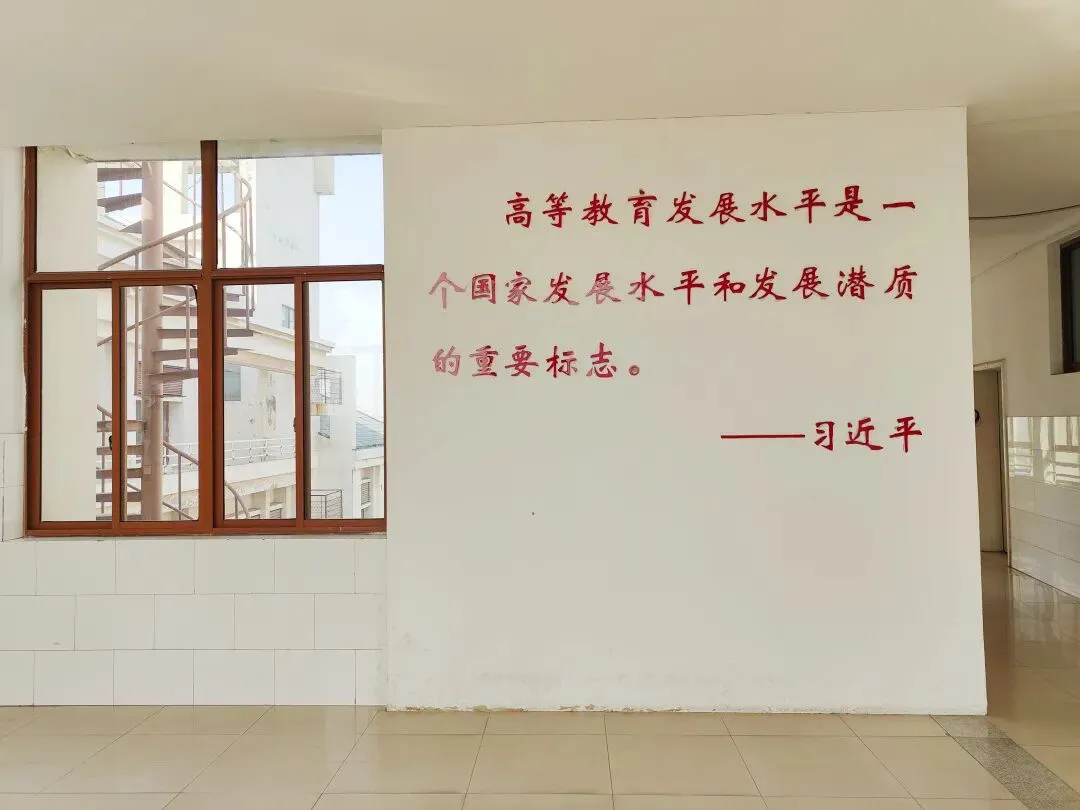 高等教育发展水平是一
个国家发展水平和发展潜质
的重要标志。
——习近平